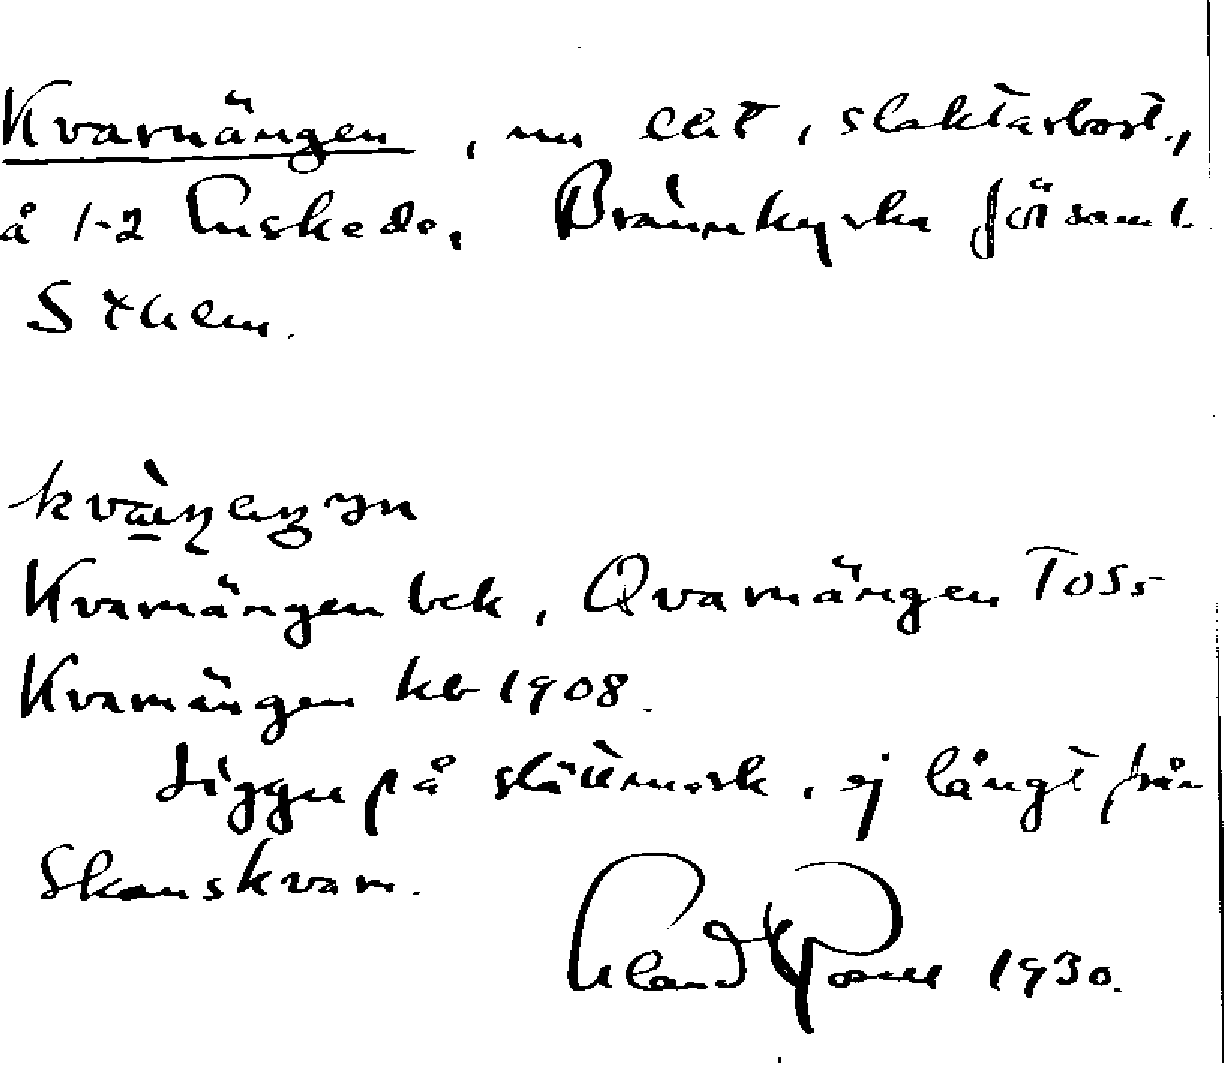 Kvarnängen, nu lht, slaktarbost.,
å 1-2 Enskede, Brännkyrka församl.
Sthlm.
Kvarnängen bek, Qvarnängen Toss
Kvarnängen kb 1908.
Ligger på slättmark, ej långt från
Skanskvarn.
1930.